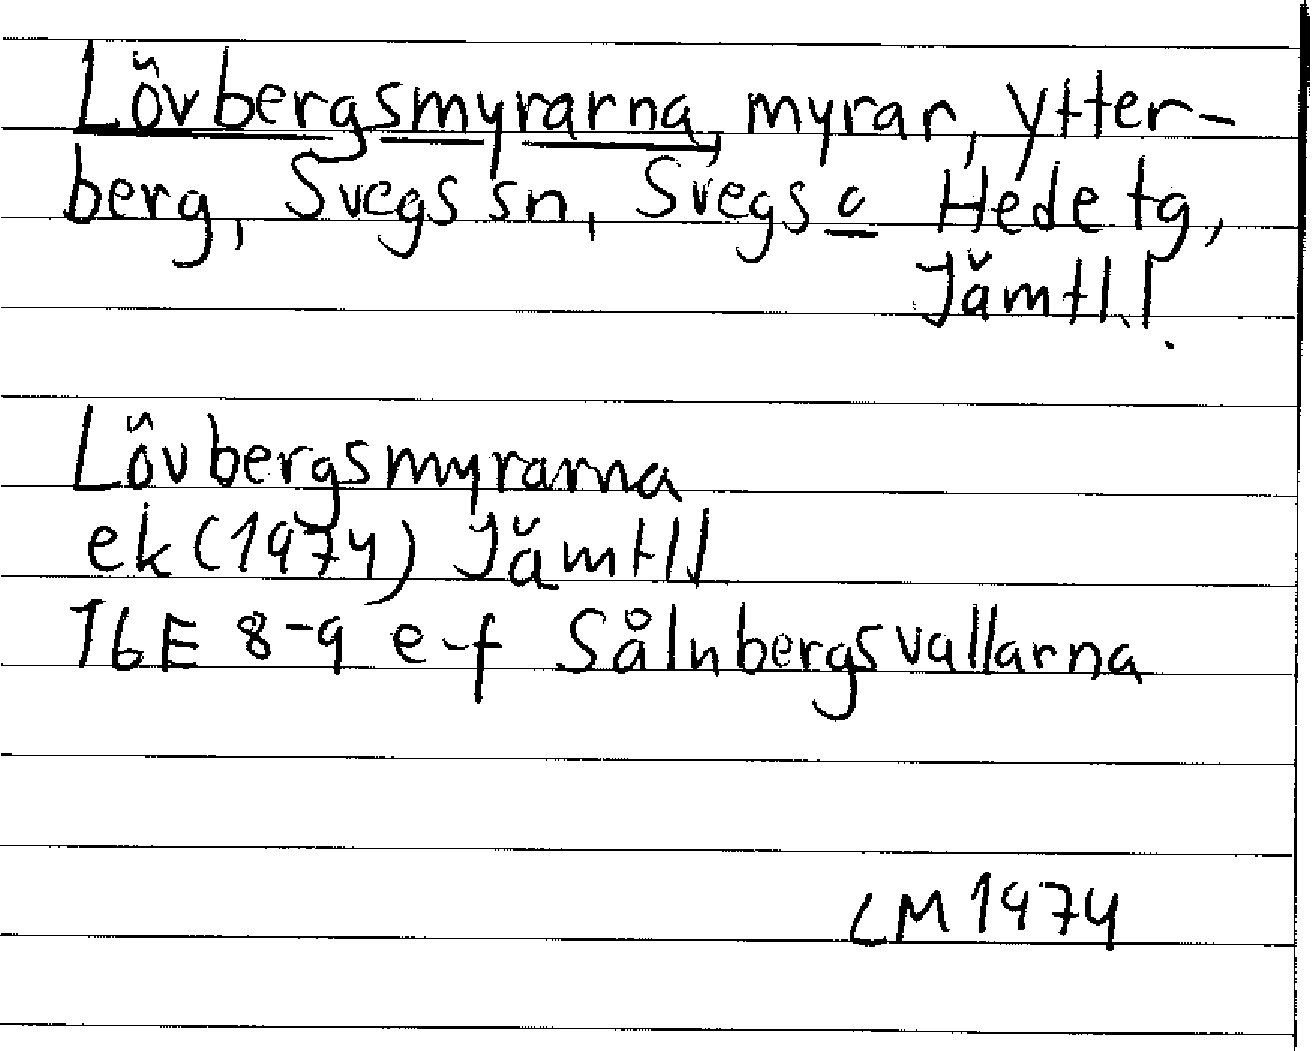 Lövbergsmyrarna, myrar, Ytter-
berg, Svegs sn, Svegs o Hede tg,
Jämtl. l.
Lövbergsmyrarna
ek (1974) Jämtl l
16E 8-9 e-f Sålnbergsvallarna
LM 1974